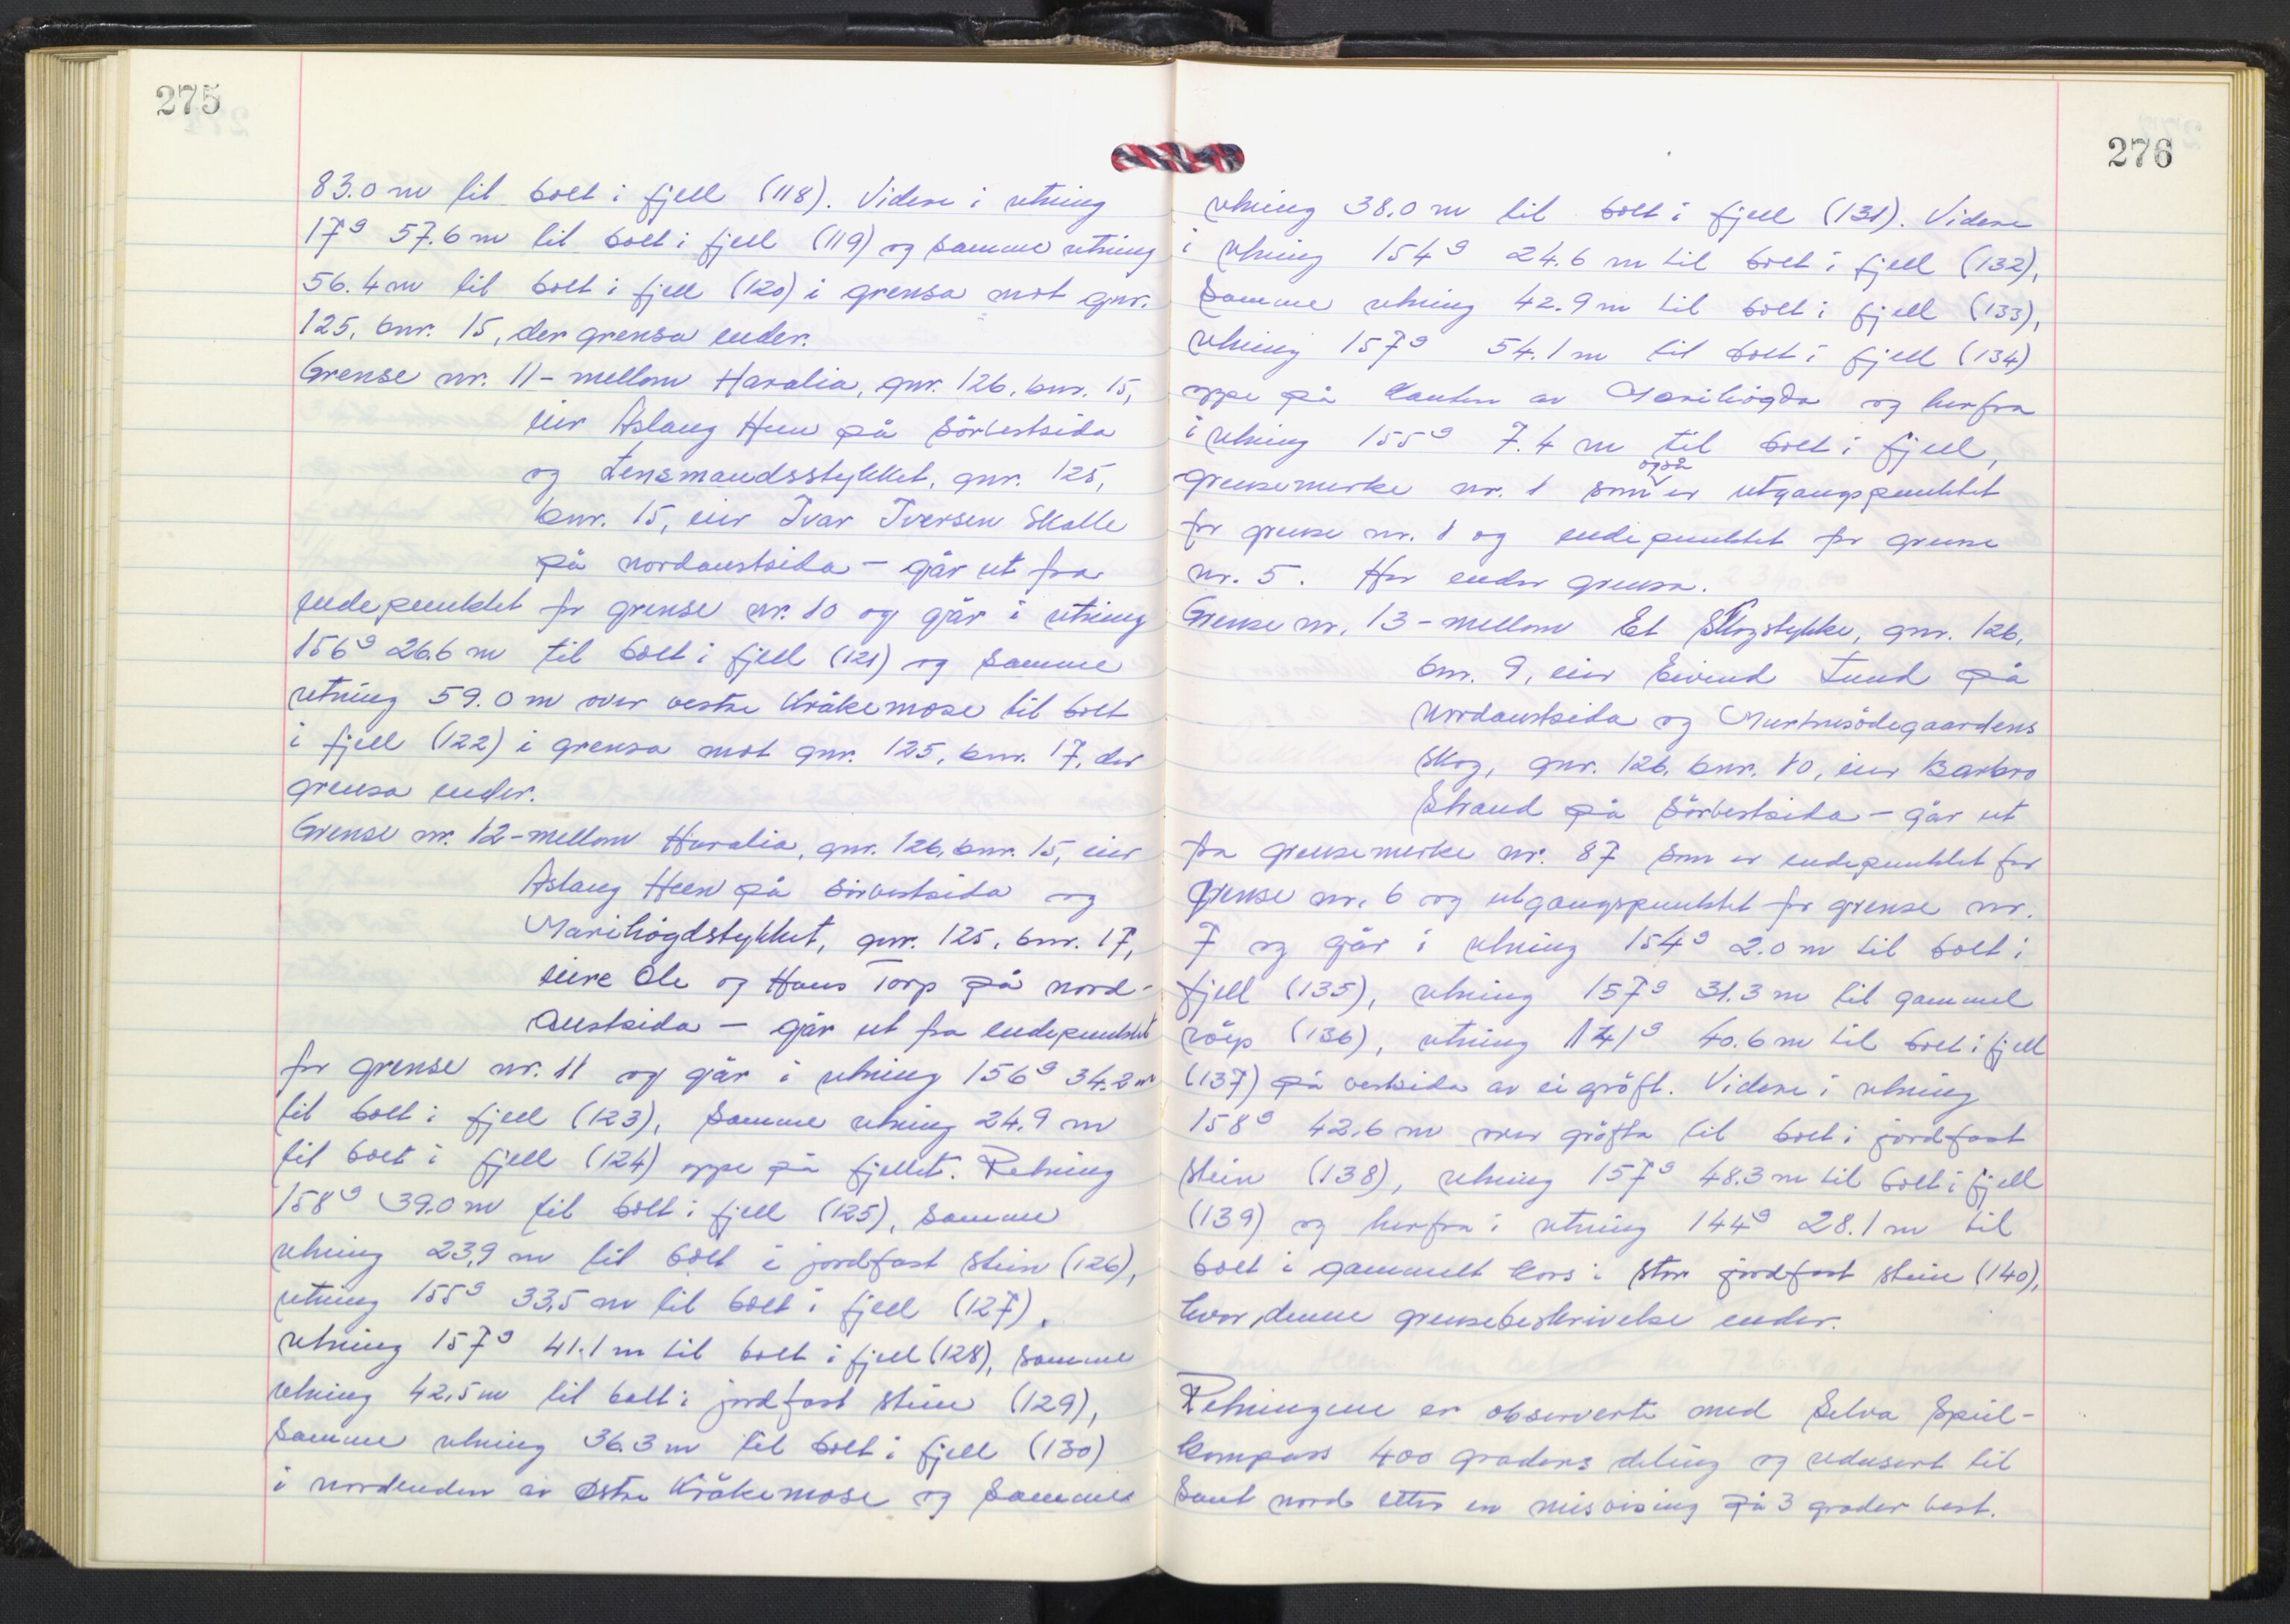 275
83.0 m til bolt i fjell (118). Videre i retning
17g 57.6 m til bolt i fjell (119) og samme retning
56.4 m til bolt i fjell (120) i grensa mot gnr.
125, bnr. 15, der grensa ender.
Grense nr. 11 - mellom Haralia, gnr. 126, bnr. 15,
eier Aslaug Heen på sörvestsida
og Lensmandsstykket, gnr. 125,
bnr. 15, eier Ivar Iversen Skolle
på nordaustsida - går ut fra
endepunktet for grense nr. 10 og går i retning
156g 26.6 m til bolt i fjell (121) og samme
retning 59.0 m over vestre Kråkemose til bolt
i fjell (122) i grensa mot gnr. 125, bnr. 17, der
grensa ender.
Grense nr. 12 - mellom Haralia, gnr. 126, bnr. 15, eier
Aslaug Heen på sörvestsida og
Marihögdstykket, gnr. 125, bnr. 17,
eiere Ole og Hans Torp på nord-
austsida - går ut fra endepunktet
for grense nr. 11 og går i retning 156g 34.2 m
til bolt i fjell (123), samme retning 24.9 m
til bolt i fjell (124) oppe på fjellet. Retning
158g 39.0 m til bolt i fjell (125), samme
retning 23.9 m til bolt i jordfast stein (126),
retning 155g 33.5 m til bolt i fjell (127),
retning 157g 41.1 m til bolt i fjell (128), samme
retning 42.5 m til bolt i jordfast stein (129),
samme retning 36.3 m til bolt i fjell (130)
i nordenden av östre Kråkemose og samme
276
retning 38.0 m til bolt i fjell (131). Videre
i retning 154g 24.6 m til bolt i fjell (132),
samme retning 42.9 m til bolt i fjell (133),
retning 157g 54.1 m til bolt i fjell (134)
oppe på kanten av Marihögda og herfra
i retning 155g 7.4 m til bolt i fjell,
grensemerke nr. 1 som også er utgangspunktet
for grense nr. 1 og endepunktet for grense
nr. 5. Her ender grensa.
Grense nr. 13 - mellom Et Skogstykke, gnr. 126,
bnr. 9, eier Eivind Lund på
nordaustsida og Murtnesödegaardens
skog, gnr. 126, bnr. 10, eier Barbro
Strand på sörvestsida - går ut
fra grensemerke nr. 87 som er endepunktet for
grense nr. 6 og utgangspunktet for grense nr.
7 og går i retning 154g 2.0 m til bolt i
fjell (135), retning 157g 31.3 m til gammel
röys (136), retning 141g 40.6 m til bolt i fjell
(137) på vestsida av ei gröft. Videre i retning
158g 42.6 m over gröfta til bolt i jordfast
stein (138), retning 157g 48.3 m til bolt i fjell
(139) og herfra i retning 144g 28.1 m til
bolt i gammelt kors i stor jordfast stein (140),
hvor denne grensebeskrivelse ender.
Retningene er observerte med Silva Speil-
kompass 400 graders deling og redusert til
sant nord etter en misvising på 3 grader vest.